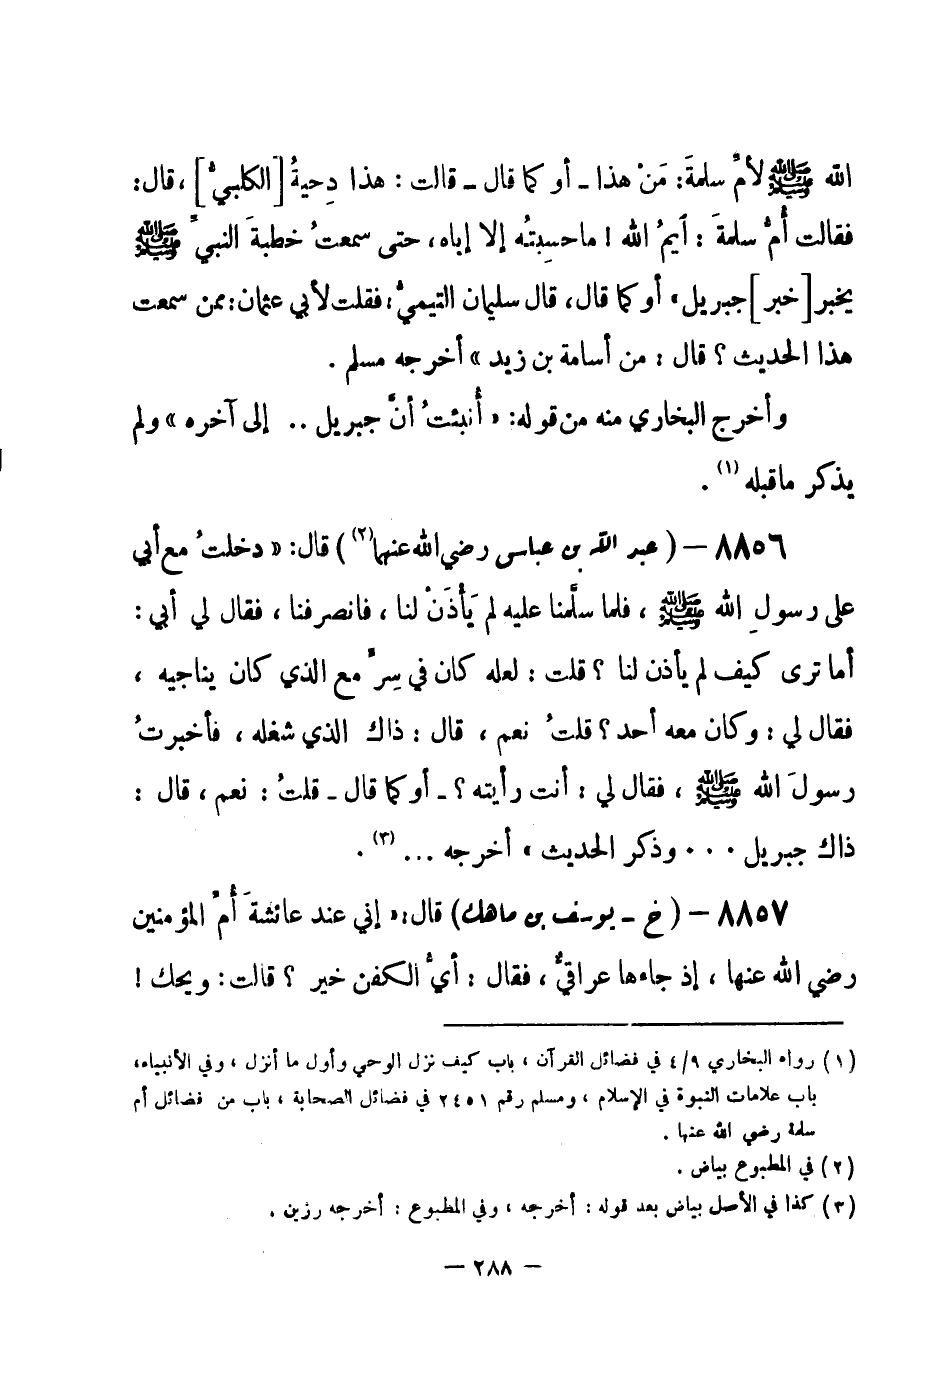 الله ﷺ لأمِّ سلمةَ: مَنْ هذا ـ أو كما قال ـ قالت : هذا دِحيةُ [الكلبيُّ] ، قال:
فقالت أُمُّ سلمةَ : اَيمُ الله ! ماحسِبتُه إلا إياه، حتى سمعتُ خطبةَ النبيِّ ﷺ
يخبر [خبر] جبريل» أو كما قال، قال سليمان التيميُّ: فقلت لأبي عثمان: ممن سمعت
هذا الحديث ؟ قال : من أسامة بن زيد » أخرجه مسلم .
وأخرج البخاري منه من قوله: « أُنبئتُ أنَّ جبريل .. إلى آخره » ولم
يذكر ماقبله (١) .
٨٨٥٦ – ( عبد الله بن عباس رضي الله عنهما(٢) ) قال: « دخلتُ مع أبي
على رسولِ الله ﷺ ، فلما سلَّمنا عليه لم يَأْذَنْ لنا ، فانصرفنا ، فقال لي أبي :
أما ترى كيف لم يأذن لنا ؟ قلت : لعله كان في سِرٍّ مع الذي كان يناجيه ،
فقال لي : وكان معه أحد ؟ قلتُ نعم ، قال : ذاك الذي شغله ، فأخبرتُ
رسولَ الله ﷺ ، فقال لي : أنت رأيته ؟ ـ أو كما قال ـ قلتُ : نعم ، قال :
ذاك جبريل ... وذكر الحديث » أخرجه ... (٣) .
٨٨٥٧ – (خ ـ يوسف بن ماهك) قال: « إني عند عائشةَ أُمِّ المؤمنين
رضي الله عنها ، إذ جاءها عراقيٌّ ، فقال : أيُّ الكفن خير ؟ قالت: ويحك !
(١) رواه البخاري ٤/٩ في فضائل القرآن ، باب كيف نزل الوحي وأول ما أنزل ، وفي الأنبياء،
باب علامات النبوة في الإسلام ، ومسلم رقم ٢٤٥١ في فضائل الصحابة ، باب من فضائل أم
سلمة رضي الله عنها .
(٢) في المطبوع بياض .
(٣) كذا في الأصل بياض بعد قوله : أخرجه ، وفي المطبوع : أخرجه رزين .
– ٢٨٨ –